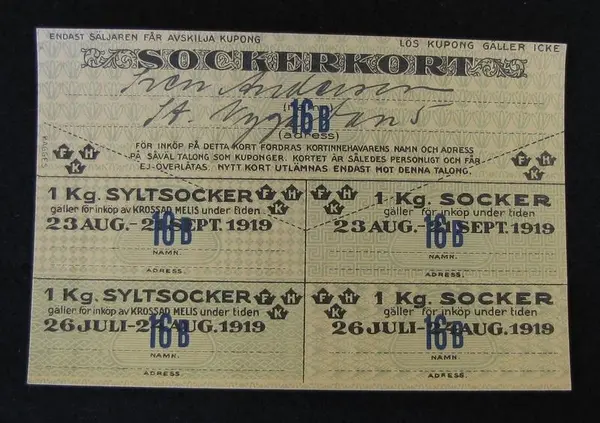 ENDAST SÄLJAREN FÅR AVSKILJA KUPONG
LÖS KUPONG GÄLLER ICKE
SOCKERKORT
Sven Andersson
St. Nygatan 5
16 B
(adress)
FÖR INKÖP PÅ DETTA KORT FORDRAS KORTINNEHAVARENS NAMN OCH ADRESS
PÅ SÅVÄL TALONG SOM KUPONGER. KORTET ÄR SÅLEDES PERSONLIGT OCH FÅR
EJ ÖVERLÅTAS. NYTT KORT UTLÄMNAS ENDAST MOT DENNA TALONG.
F H K
F H K
1 Kg. SYLTSOCKER
F H K
gäller för inköp av KROSSAD MELIS under tiden
23 AUG.-21 SEPT. 1919
16 B
NAMN.
ADRESS.
F H K
1 Kg. SOCKER
gäller för inköp under tiden
23 AUG.-21 SEPT. 1919
16 B
NAMN.
ADRESS.
1 Kg. SYLTSOCKER
F H K
gäller för inköp av KROSSAD MELIS under tiden
26 JULI-22 AUG. 1919
16 B
NAMN.
ADRESS.
F H K
1 Kg. SOCKER
gäller för inköp under tiden
26 JULI-22 AUG. 1919
16 B
NAMN.
ADRESS.